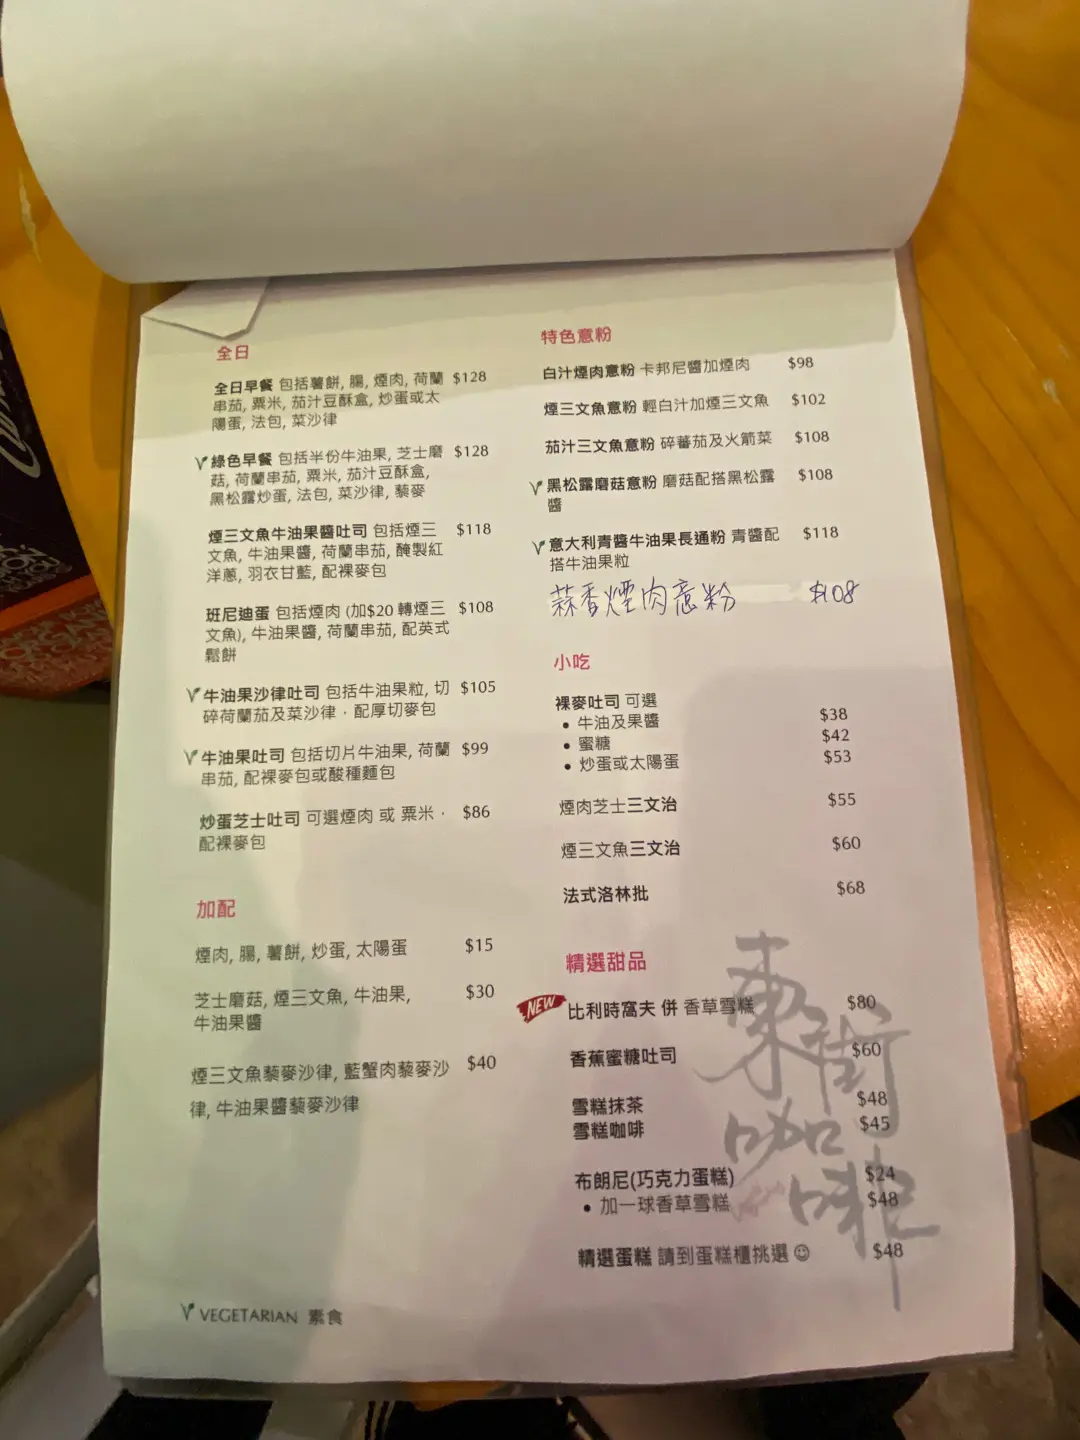 全日
全日早餐 包括薯餅, 腸, 煙肉, 荷蘭 $128
串茄, 粟米, 茄汁豆酥盒, 炒蛋或太
陽蛋, 法包, 菜沙律
綠色早餐 包括半份牛油果, 芝士磨 $128
菇, 荷蘭串茄, 粟米, 茄汁豆酥盒,
黑松露炒蛋, 法包, 菜沙律, 藜麥
煙三文魚牛油果醬吐司 包括煙三 $118
文魚, 牛油果醬, 荷蘭串茄, 醃製紅
洋蔥, 羽衣甘藍, 配裸麥包
班尼迪蛋 包括煙肉 (加$20 轉煙三 $108
文魚), 牛油果醬, 荷蘭串茄, 配英式
鬆餅
牛油果沙律吐司 包括牛油果粒, 切 $105
碎荷蘭茄及菜沙律．配厚切麥包
牛油果吐司 包括切片牛油果, 荷蘭 $99
串茄, 配裸麥包或酸種麵包
炒蛋芝士吐司 可選煙肉 或 粟米． $86
配裸麥包
加配
煙肉, 腸, 薯餅, 炒蛋, 太陽蛋 $15
芝士磨菇, 煙三文魚, 牛油果, $30
牛油果醬
煙三文魚藜麥沙律, 藍蟹肉藜麥沙 $40
律, 牛油果醬藜麥沙律
VEGETARIAN 素食
特色意粉
白汁煙肉意粉 卡邦尼醬加煙肉 $98
煙三文魚意粉 輕白汁加煙三文魚 $102
茄汁三文魚意粉 碎蕃茄及火箭菜 $108
黑松露磨菇意粉 磨菇配搭黑松露 $108
醬
意大利青醬牛油果長通粉 青醬配 $118
搭牛油果粒
蒜香煙肉意粉 $108
小吃
裸麥吐司 可選
• 牛油及果醬 $38
• 蜜糖 $42
• 炒蛋或太陽蛋 $53
煙肉芝士三文治 $55
煙三文魚三文治 $60
法式洛林批 $68
精選甜品
NEW 比利時窩夫 併 香草雪糕 $80
香蕉蜜糖吐司 $60
雪糕抹茶 $48
雪糕咖啡 $45
布朗尼(巧克力蛋糕) $24
• 加一球香草雪糕 $48
精選蛋糕 請到蛋糕櫃挑選☺ $48
東街
咖啡